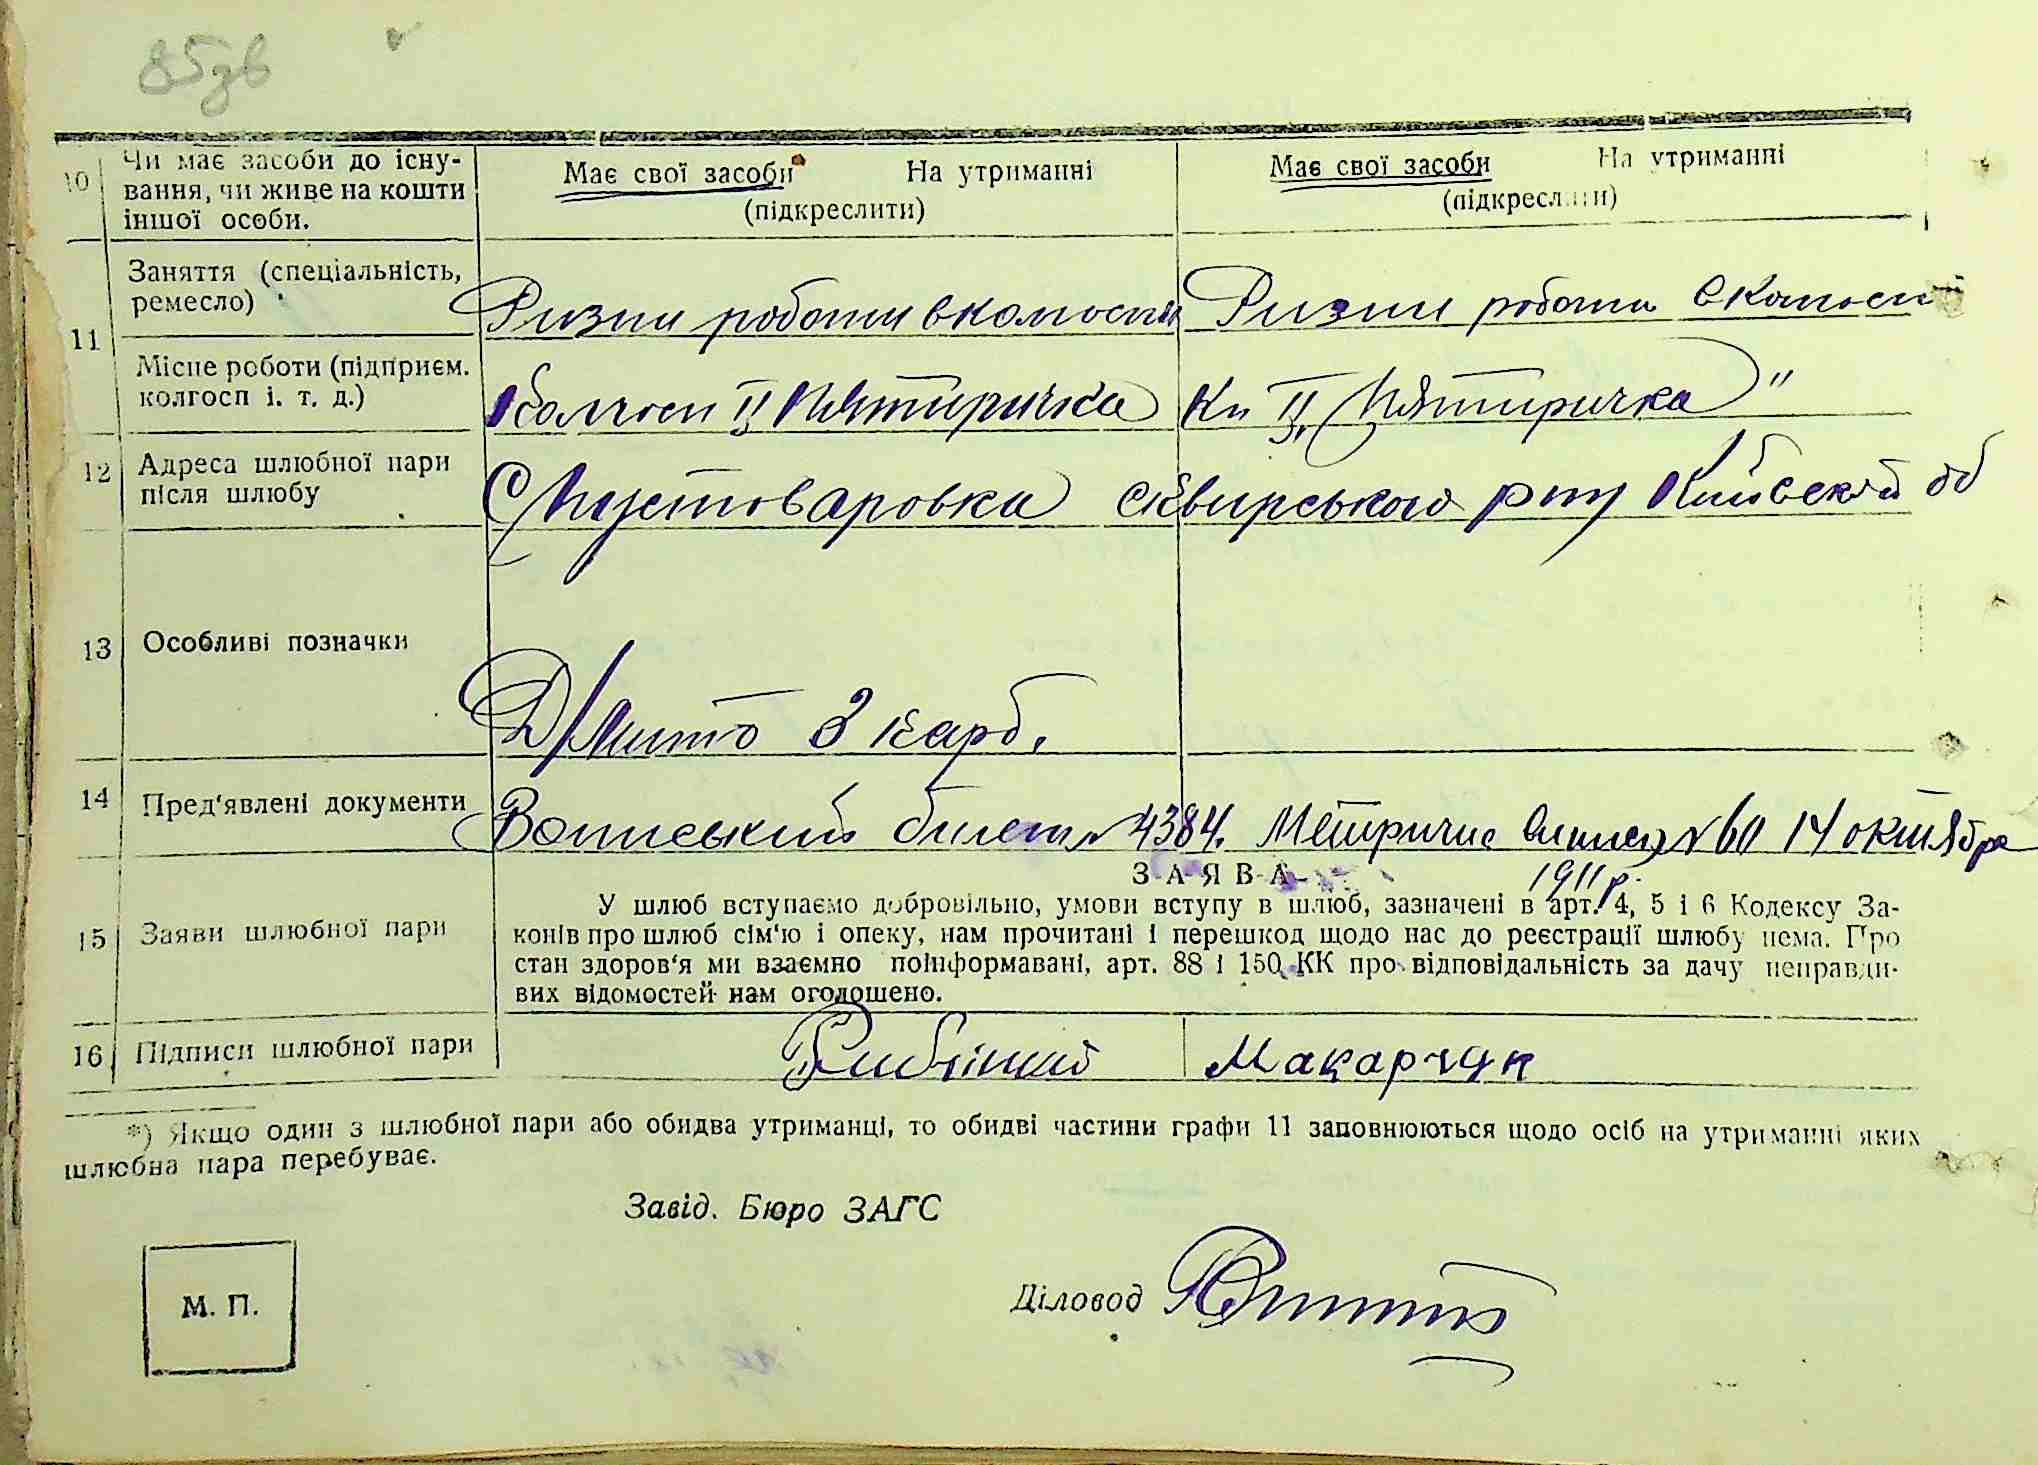 85зв
10 Чи має засоби до існу- Має свої засоби На утриманні Має свої засоби На утриманні
вання, чи живе на кошти (підкреслити) (підкреслити)
іншої особи.
11 Заняття (спеціальність, Ризни роботи в колгоспи Ризни роботи в колгоспи
ремесло)
Місце роботи (підприєм. Колгосп ІІ Пятиричка Кп ІІ "Пятиричка"
колгосп і. т. д.)
12 Адреса шлюбної пари С Пустоваровка сквирського р-ну Київскої об
після шлюбу
13 Особливі позначки
Д/мито 3 карб.
14 Пред'явлені документи Воинський билет № 4384. Метричне випись № 60 14 октября
1911 р.
ЗАЯВА
15 Заяви шлюбної пари У шлюб вступаємо добровільно, умови вступу в шлюб, зазначені в арт. 4, 5 і 6 Кодексу За-
конів про шлюб сім'ю і опеку, нам прочитані і перешкод щодо нас до реєстрації шлюбу нема. Про
стан здоров'я ми взаємно поінформавані, арт. 88 і 150 КК про відповідальність за дачу неправди-
вих відомостей нам оголошено.
16 Підписи шлюбної пари Макарчук
*) Якщо один з шлюбної пари або обидва утриманці, то обидві частини графи 11 заповнюються щодо осіб на утриманні яких
шлюбна пара перебуває.
Завід. Бюро ЗАГС
Діловод
М. П.